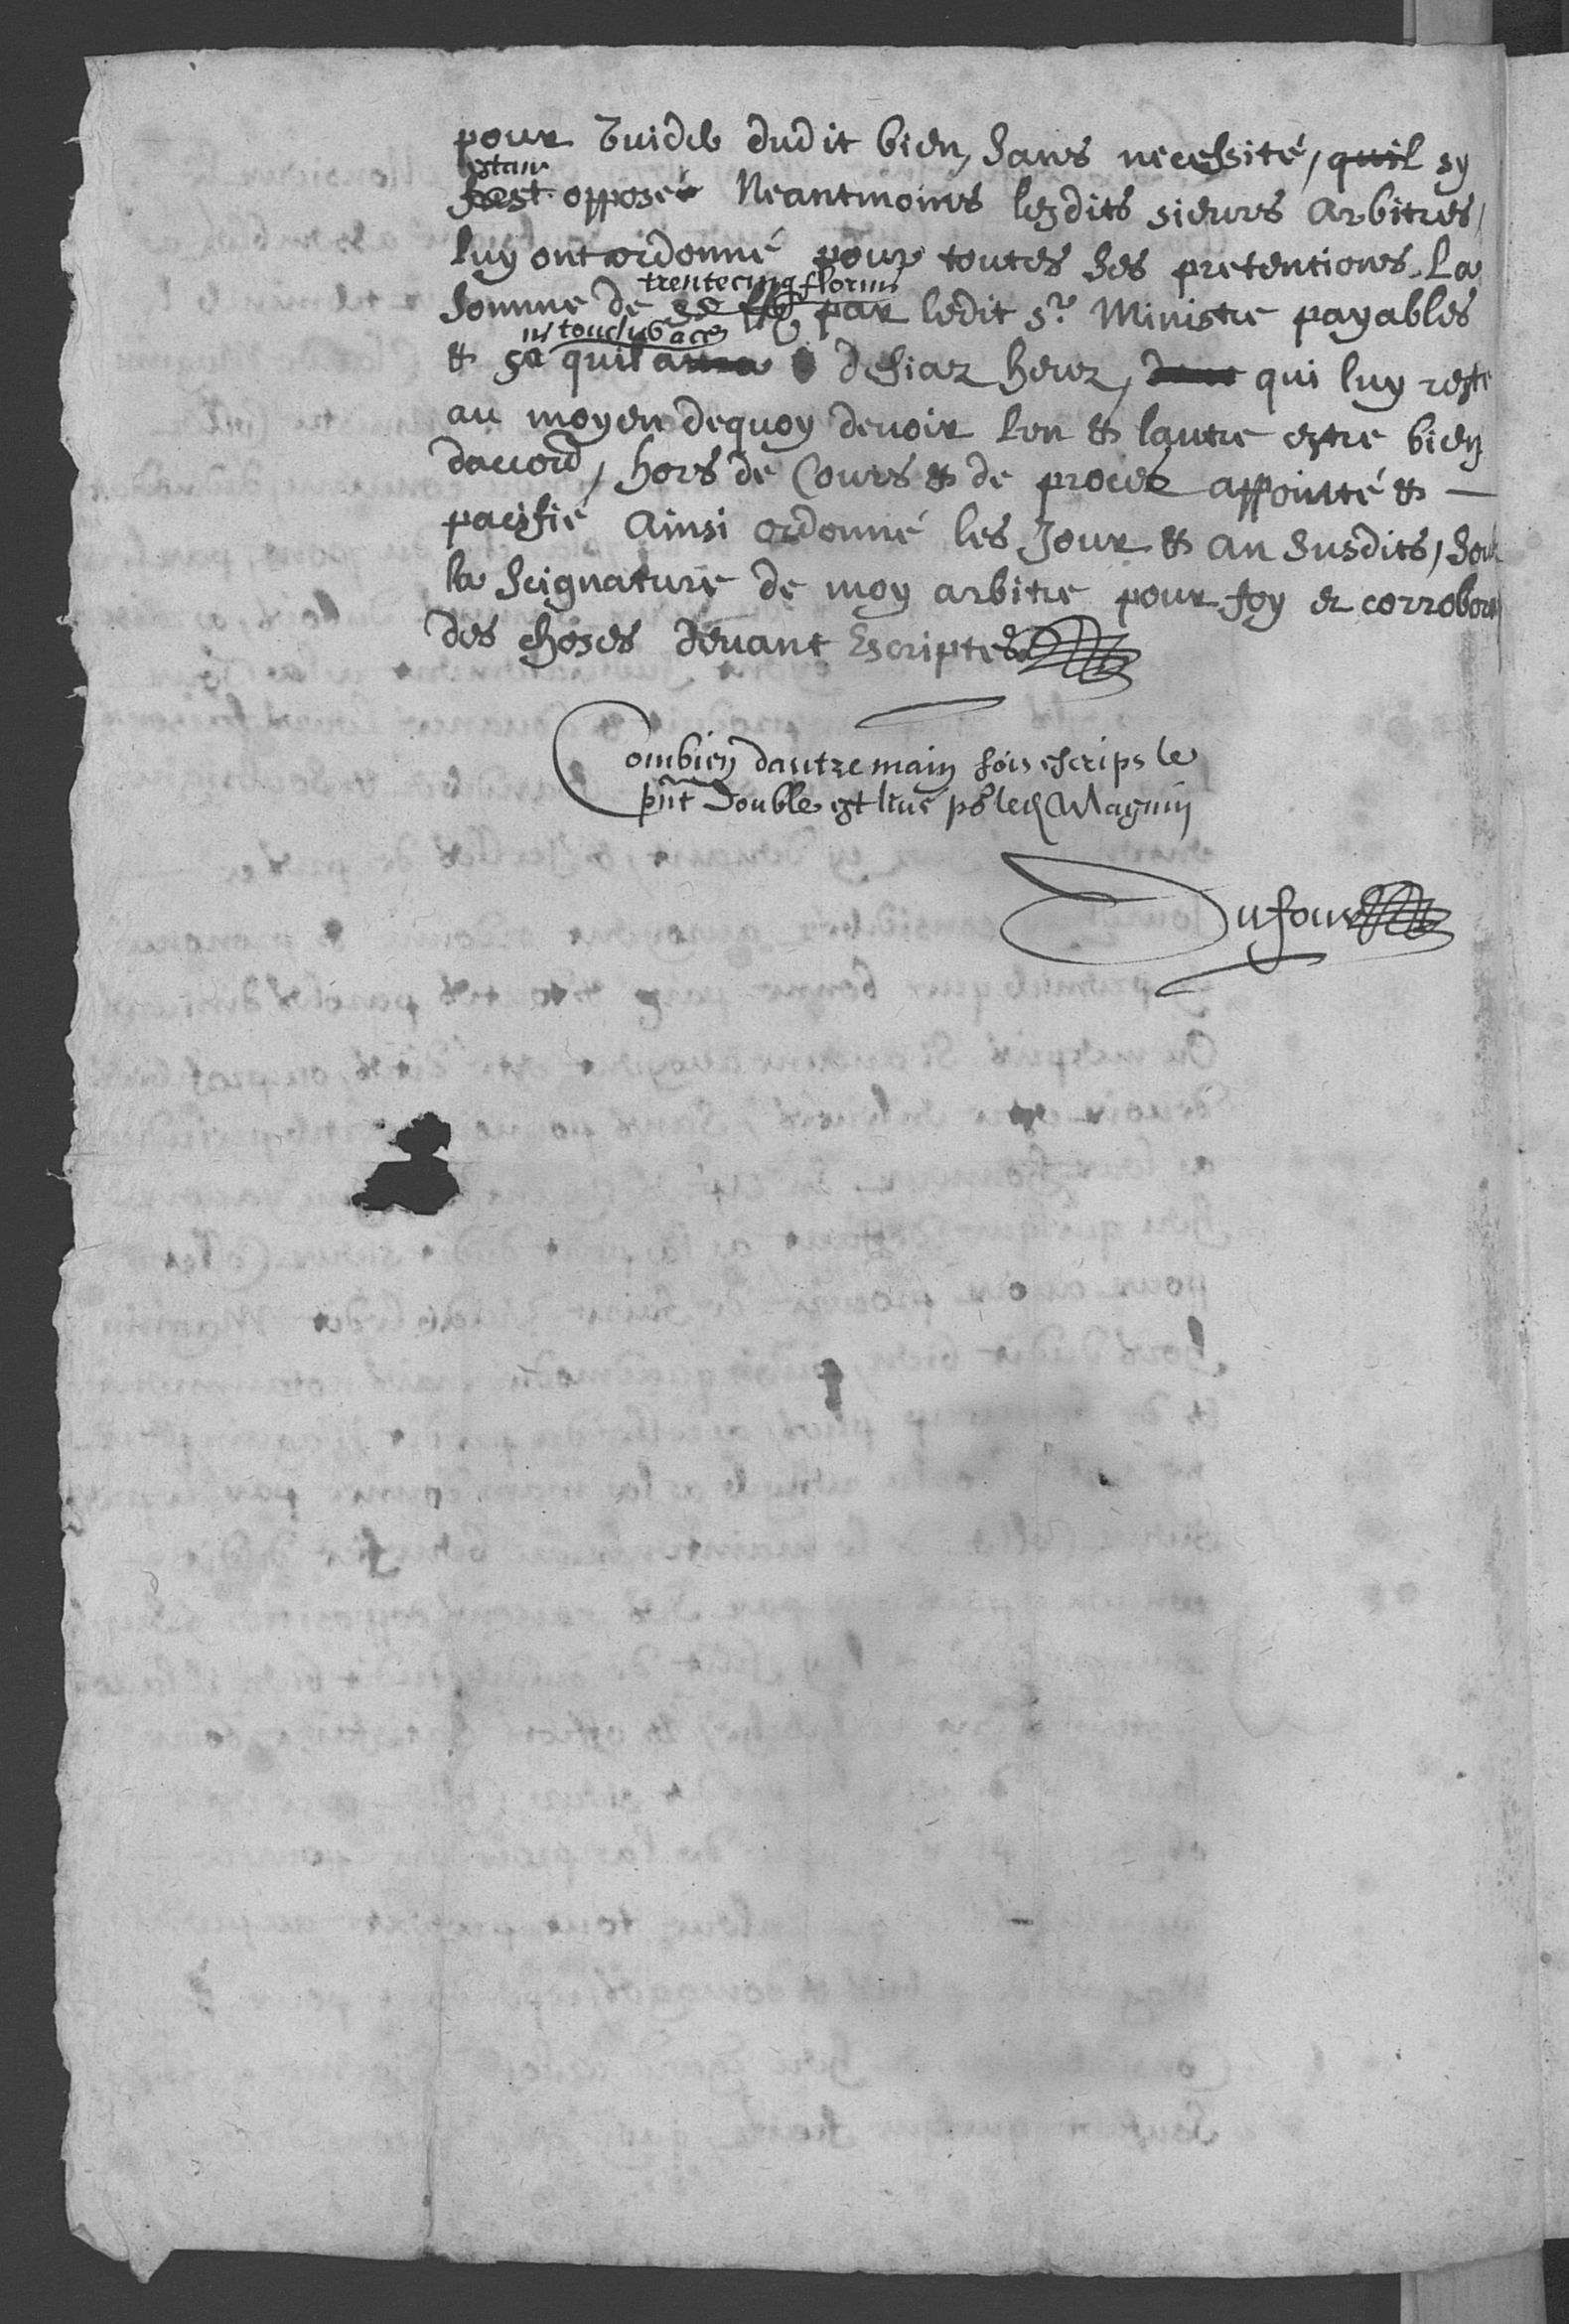 pour vuider dudit bien, sans necessité, quil sy
estant
sest opposé Neantmoins lesdits sieurs Arbitres,
luy ont ordonné pour toutes ses pretentions La
trentecinq florins
somme de 35 ff par ledit Sr. Ministre payables
& quil desiaz heuz, qui luy reste
au moyen dequoy devoir lun & lautre estre bien
daccord, hors de Cours & de procez appointté & —
pacifié Ainsi ordonné les Jour & an susdits, soub
la seignature de moy arbitre pour foy et corrobor
des choses devant Escriptes
Combien dautre main sois escrips le
pñt Double est livré led Magnin
Dufour